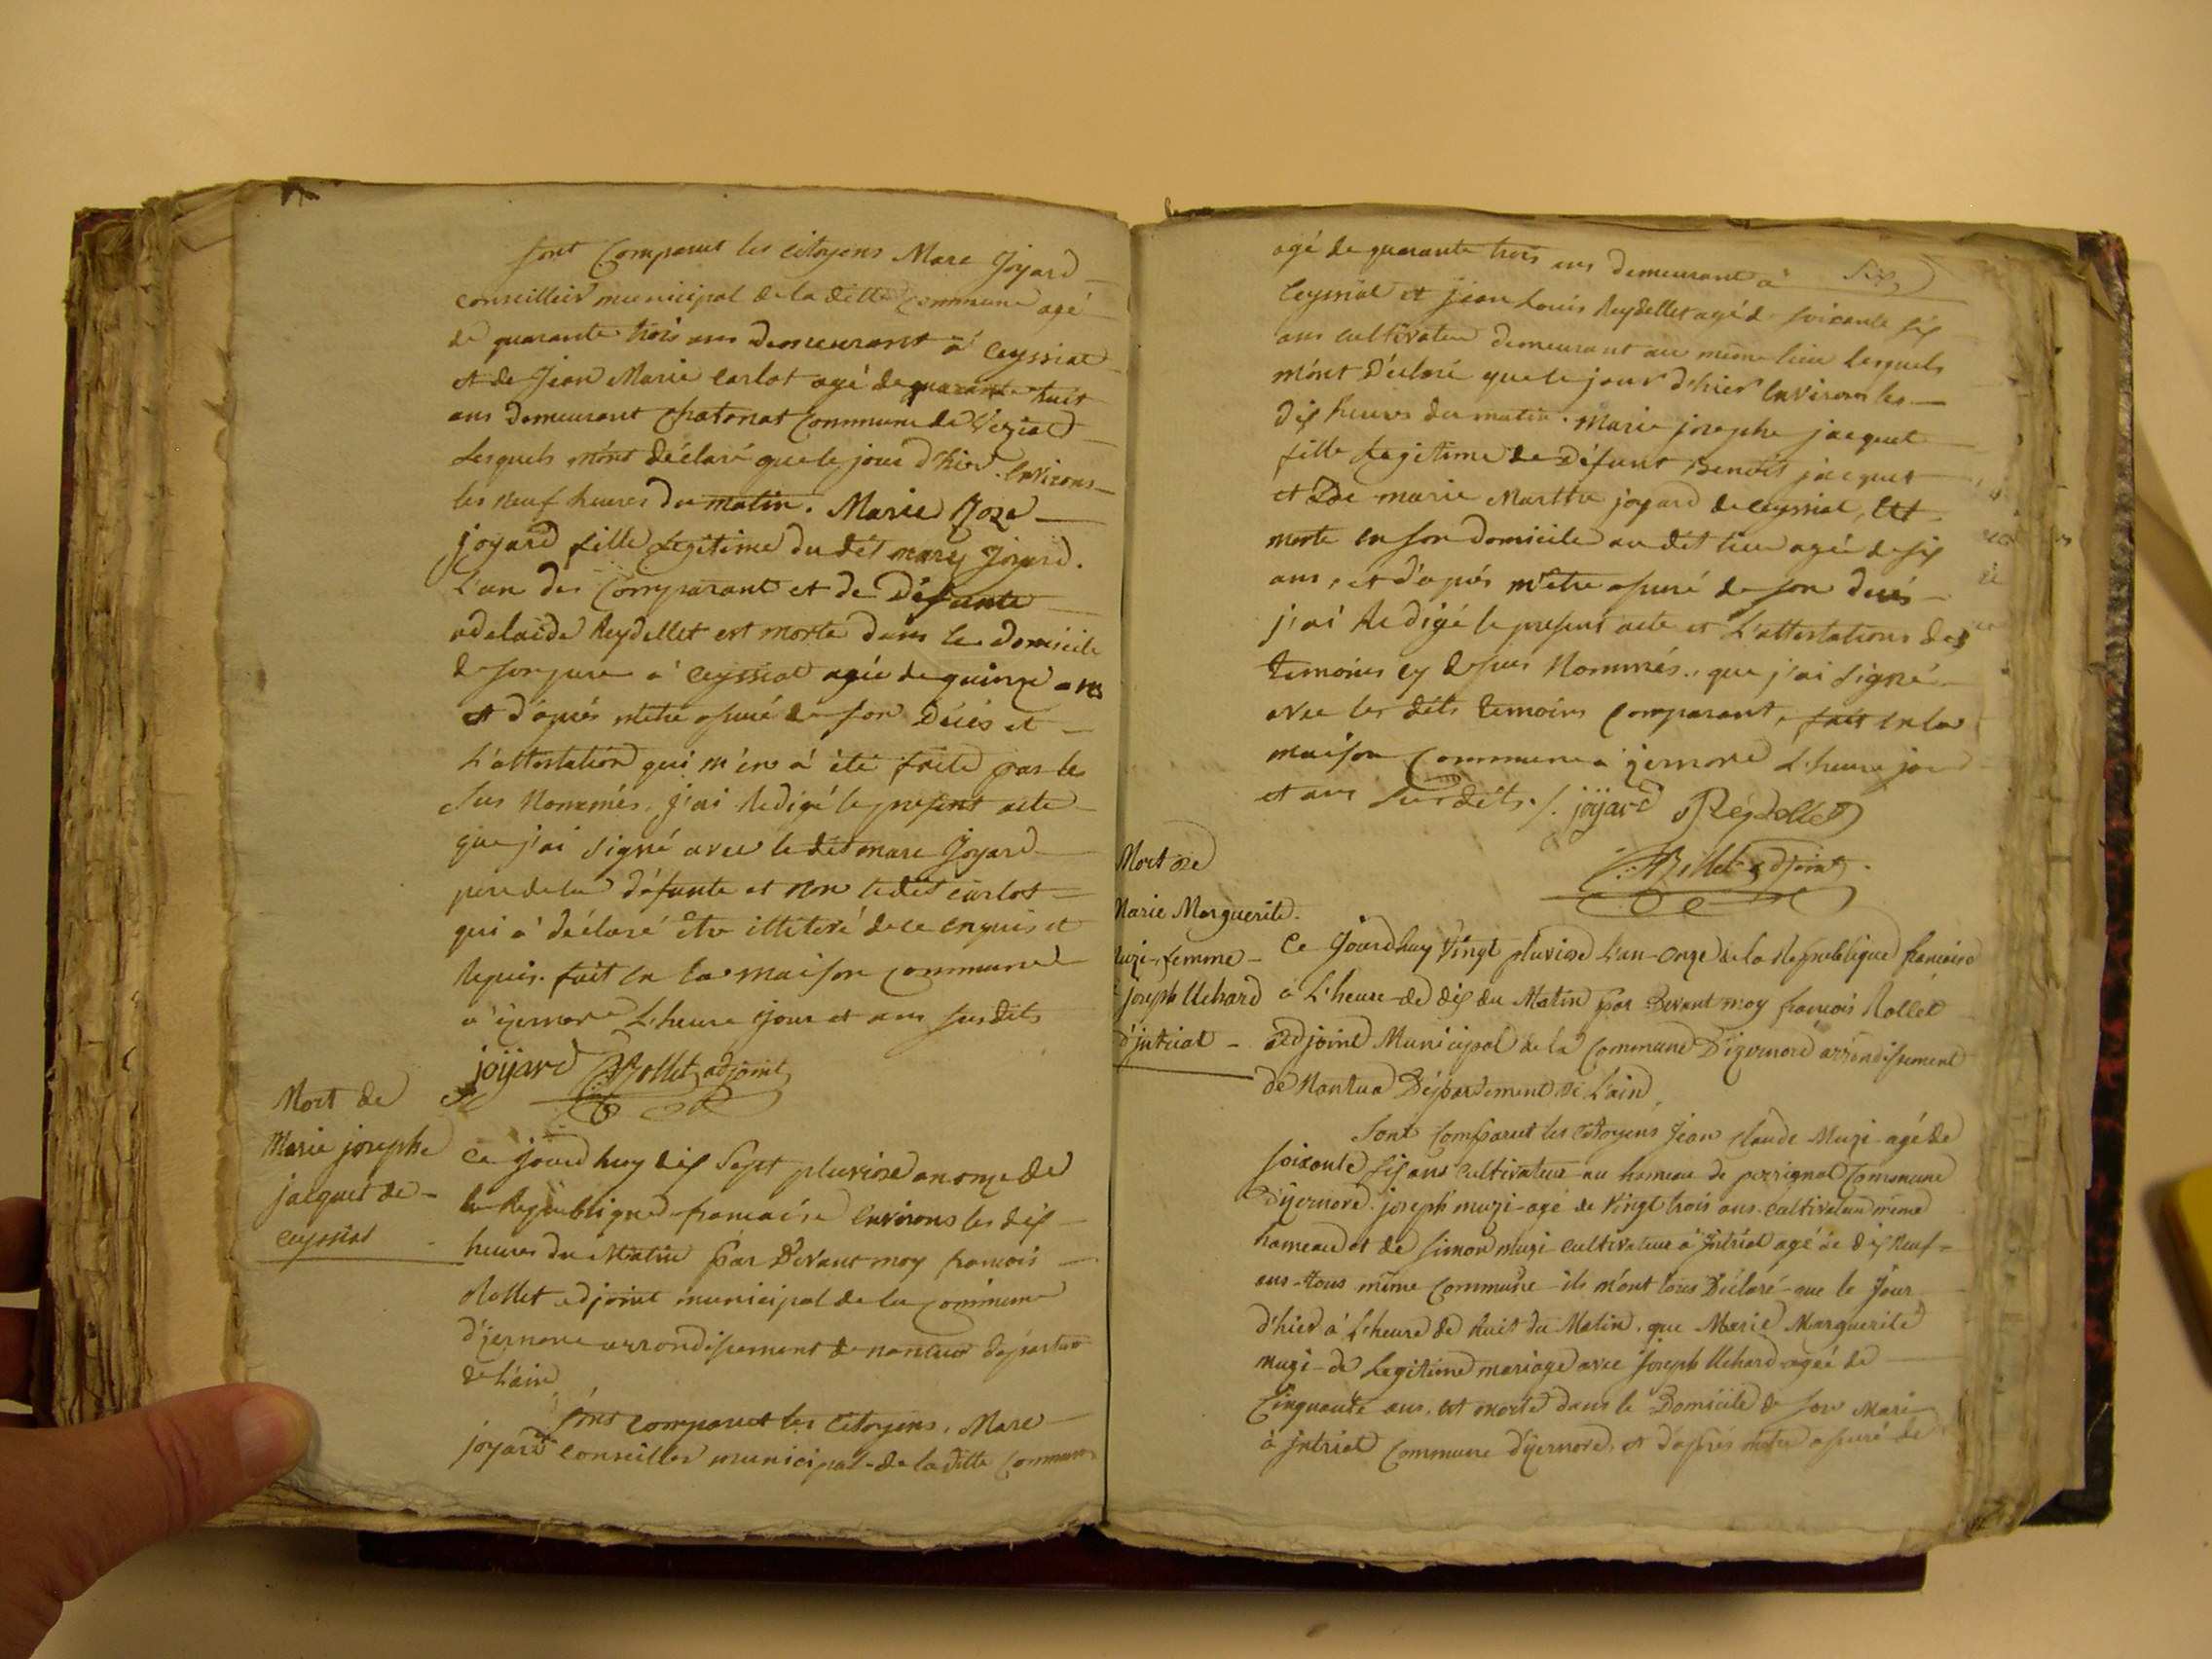 sont Comparut les citoyens Marc Joyard
conseiller municipal de la ditte Commune agé
de quarante trois ans demeurant à Ceyssiat
et de Jean Marie Carlot agé de quarante huit
ans demeurant Chatonat Commune de Veziat
Lesquels mónt déclaré que le jour d'hier Environs
les neuf heures du matin. Marie Roze
joyard fille Legitime du dit marc Joyard.
L'un des Comparant et de Défunte
adelaide Reydellet est morte dans le Domicile
de son pere à Ceyssiat agée de quinze ans
et d'aprés m'etre assuré de son Décés et
L'attestation qui m'en à été faite par les
sus Nommés, j'ai Redigé le present acte
que j'ai signé avec le dit marc Joyard
pere de la défunte et non le dit Carlot
qui à déclaré étre illiteré de ce enquis et
Requis. fait en la maison commune
à jzernore L'heure jour et ans susdits
joyard Rollet adjoint
Mort de
Marie josephe
jacquet de
ceyssiat
Ce jourd huy dix Sept pluviose an onze de
la Republique francaise Environs les dix
heures du Matin Par Devant moy francois
Rollet adjoint municipal de la Commune
d'jzernore arrondissement de nantua département
de L'ain
Sónt comparut les Citoyens, Marc
joyard Conseiller municipal de la ditte Commune
six
agé de quarante trois ans demeurant à
Ceyssiat et jean Louis Reydellet agé de soixante six
ans cultivateur demeurant au même lieu Lesquels
m'ónt Déclaré que le jour d'hier Environs les
dix heures du matin. Marie josephe jacquet
fille Legitime de Défunt Benoit jacquet
et de marie Marthe joyard de Ceyssiat, Est
morte en son Domicile au dit lieu agée de six
ans, et d'aprés m'etre assuré de son decés
j'ai Redigé le present acte et L'attestations des
temoins cy dessus Nommés, que j'ai Signé
avec les dits temoins Comparant, fait en la
maison Commune à jzernore L'heure jour
et ans susdits ./. joyard Reydellet
Rollet adjoint
Mort de
Marie Marguerite
muzi femme
joseph Uchard
d'jntriat
Ce Jourd huy Vingt pluviose L'an Onze de la Republique francaise
à L'heure de dix du Matin Par Devant moy francois Rollet
adjoint Municipal de la Commune D'izernore arrondissement
de Nantua Département de L'ain
Sont Comparut les Citoyens Jean Claude Muzi agé de
soixante six ans Cultivateur au hameau de perrignat Commune
d'jzernore. joseph muzi agé de Vingt trois ans Cultivateur même
hameau et de Simon muzi Cultivateur à Intriat agé de dix Neuf
ans tous même Commune ils m'ont tous Déclaré que le Jour
d'hier à L'heure de huit du Matin, que Marie Marguerite
muzi de Legitime mariage avec Joseph Uchard agée de
Cinquante ans, est morte dans le Domicile de son Mari
à jntriat Commune d'jzernore, et d'aprés m'etre assuré de